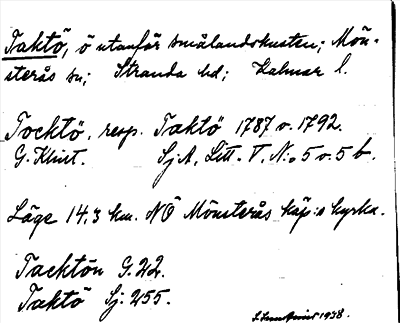 Taktö, ö utanför smålandskusten; Mön-
sterås sn; Stranda hd; Kalmar l.
Tocktö, resp. Taktö 1787 o. 1792.
G. Klint. Sj.A, Litt. V. N:o 5 o. 5 b.
Läge 14,3 km. NÖ Mönsterås köp:s kyrka.
Tacktön G. 22.
Taktö Sj: 255.
1938.